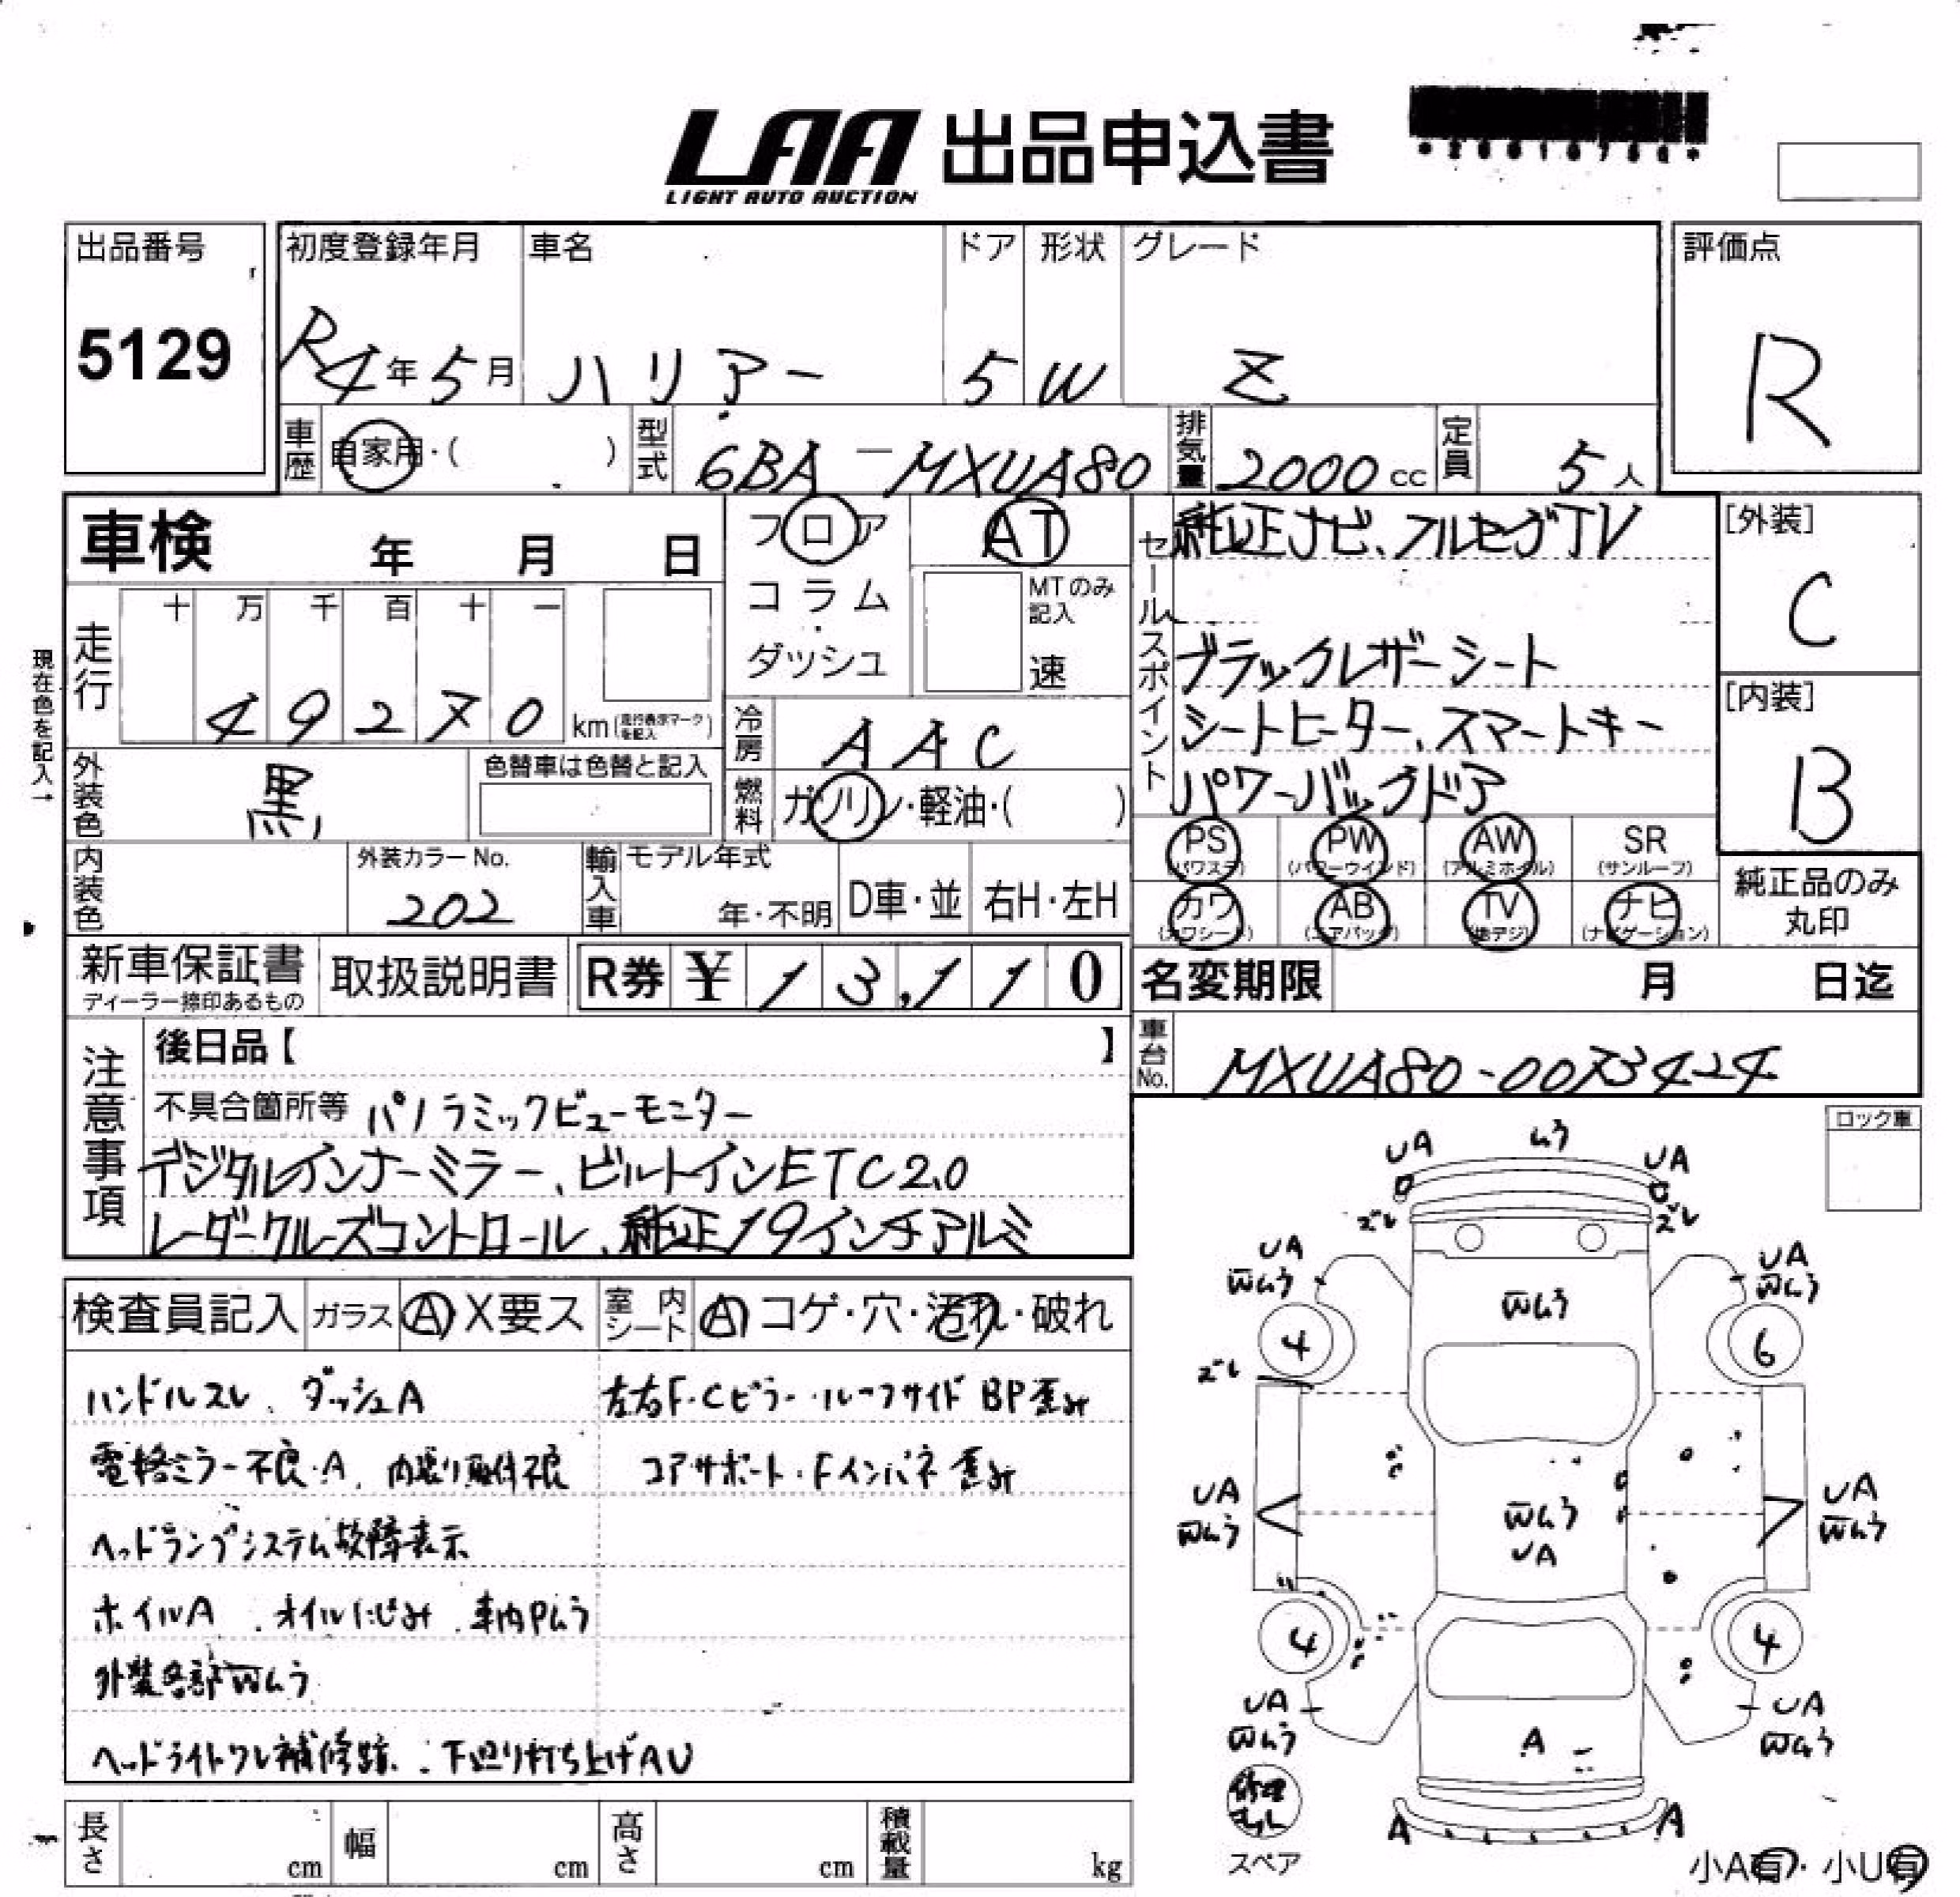 LAA 出品申込書
LIGHT AUTO AUCTION
出品番号
5129
初度登録年月
R4年5月
車名
ハリアー
ドア
5
形状
W
グレード
Z
評価点
R
車歴 自家用・( )
型式 6BA-MXUA80
排気量 2000cc
定員 5人
車検 年 月 日
フロア AT
コラム・ダッシュ
MTのみ記入
速
走行 十 万 千 百 十 一
49270 km (走行表示マークを記入)
現在色を記入→
冷房 AAC
外装色 黒
色替車は色替と記入
燃料 ガソリン・軽油・( )
内装色
外装カラーNo.
202
輸入車 モデル年式
年・不明
D車・並
右H・左H
セールスポイント
純正ナビ、フルセグTV
ブラックレザーシート
シートヒーター、スマートキー
パワーバックドア
[外装]
C
[内装]
B
PS (パワステ)
PW (パワーウインド)
AW (アルミホイル)
SR (サンルーフ)
カワ (カワシート)
AB (エアバッグ)
TV (地デジ)
ナビ (ナビゲーション)
純正品のみ
丸印
新車保証書
ディーラー捺印あるもの
取扱説明書
R券 ¥13,110
名変期限 月 日迄
車台No. MXUA80-0073424
注意事項
後日品【 】
不具合箇所等 パノラミックビューモニター
デジタルインナーミラー、ビルトインETC2.0
レーダークルーズコントロール、純正19インチアルミ
ロック車
検査員記入 ガラス A X要ス 室内シート A コゲ・穴・汚れ・破れ
ハンドルスレ、ダッシュA
左右F・Cピラー・ルーフサイド BP歪み
電格ミラー不良・A、内張り取付不良
コアサポート・Fインパネ歪み
ヘッドランプシステム故障表示
ホイルA、オイルにじみ、車内Pムラ
外装各部Wムラ
ヘッドライトワレ補修跡、下廻り打ち上げAU
長さ cm
幅 cm
高さ cm
積載量 kg
UA ムラ UA
ズレ ズレ
UA Wムラ
UA Wムラ
Wムラ
4
6
ズレ
UA Wムラ
Wムラ UA
UA Wムラ
4
4
UA Wムラ
UA Wムラ
A
修理キット
スペア
A A
小A有・小U有